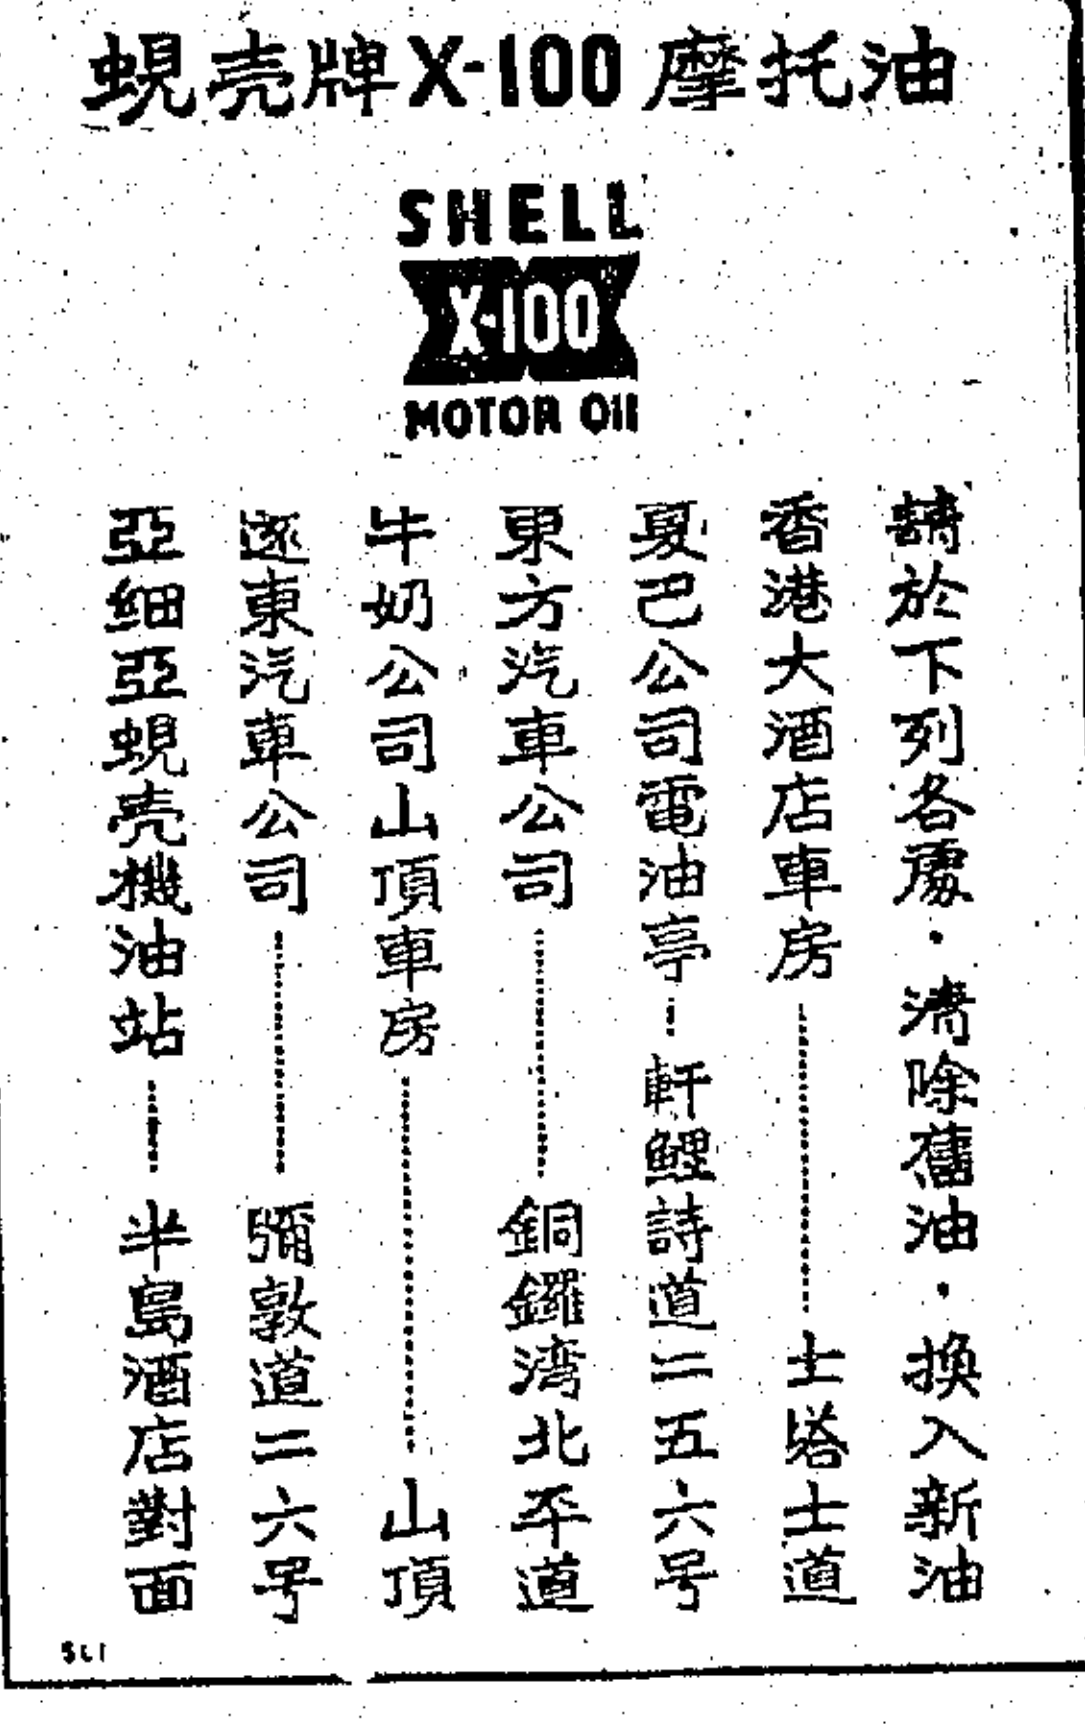 蜆壳牌X-100摩托油
SHELL
X-100
MOTOR OIL
請於下列各處・清除舊油・換入新油
香港大酒店車房…………士塔士道
夏巴公司電油亭…軒鯉詩道二五六号
東方汽車公司…………銅鑼湾北平道
牛奶公司山頂車房…………山頂
遠東汽車公司…………彌敦道二六号
亞细亞蜆壳機油站……半島酒店對面
SL1